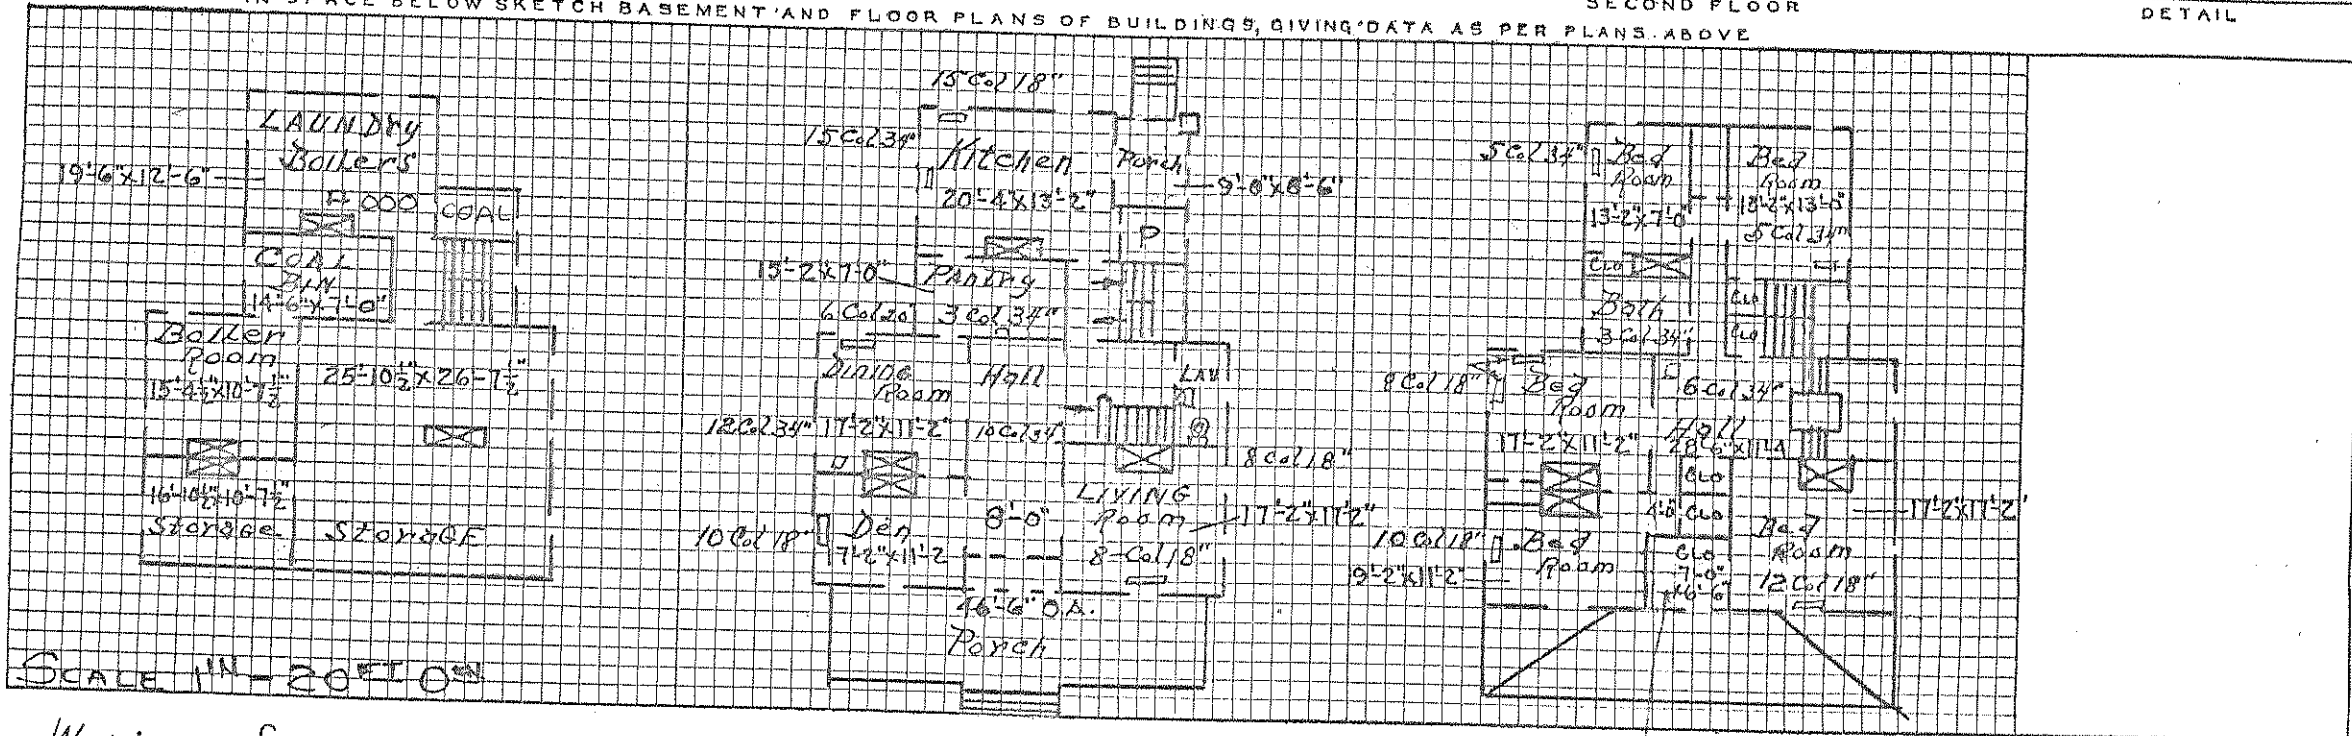 IN SPACE BELOW SKETCH BASEMENT AND FLOOR PLANS OF BUILDINGS, GIVING DATA AS PER PLANS ABOVE
SECOND FLOOR
DETAIL
LAUNDRY
Boilers
19'-6"x12'-6"
000
COAL
COAL
BIN
14'-6"x7'-0"
Boiler
Room
15'-4½"x10'-7½"
25'-10½"x26-7½"
16'-10½"x10'-7½"
Storage
STORAGE
SCALE 1IN-20FT 0IN
15 Col 18"
15 Col 34"
Kitchen
20'-4"x13'-2"
Porch
P
15'-2"x7'-0"
Pantry
6 Col 20"
3 Col 34"
Dining
Room
Hall
LAV
12 Col 34"
17'-2"x11'-2"
10 Col 34"
8 Col 18"
LIVING
Room
17'-2"x17'-2"
8'-0"
10 Col 18"
Den
17'-2"x11'-2
8-Col 18"
46'-6" O.A.
Porch
5 Col 34"
Bed
Room
13'-2"x7'-0"
Bed
Room
5 Col 34"
CLO
Bath
3 Col 34"
CLO
CLO
8 Col 18"
Bed
Room
17'-2"x11'-2"
6 Col 34"
Hall
CLO
CLO
17'-2"x17'-2"
10 Col 18"
Bed
Room
9'-2"x11'-2"
CLO
7'-0"
x6'-6"
Bed
Room
12 Col 18"